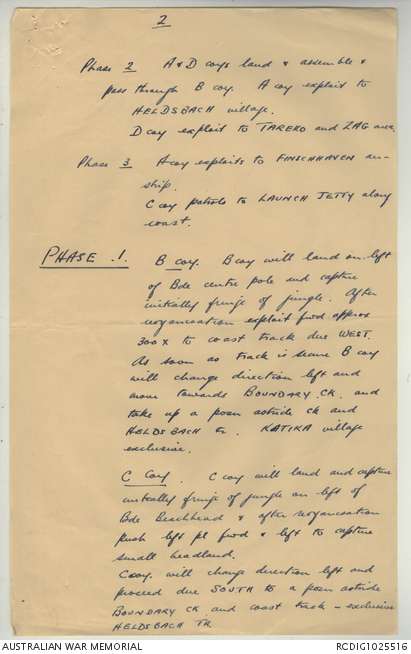 2
Phase 2 A & D coys land & assemble &
pass through B coy. A coy exploit to
HELDSBACH village.
D coy exploit to TAREKO and ZAG area.
Phase 3 A coy exploits to FINSCHHAVEN air-
ship.
C coy patrols to LAUNCH JETTY along
coast.
PHASE .1. B coy. B coy will land on left
of Bde centre pole and capture
initially fringe of jungle. After
reorganisation exploit fwd approx
300 x to coast track due WEST.
As soon as track is secure B coy
will change direction left and
move towards BOUNDARY. CK. and
take up a posn astride ck and
HELDSBACH tr. KATIKA village
exclusive.
C Coy. C coy will land and capture
initially fringe of jungle on left of
Bde Beachhead & after reorganisation
push left pl fwd & left to capture
small headland.
C coy. will change direction left and
proceed due SOUTH to a posn astride
BOUNDARY CK and coast track - exclusive
HELDSBACH TR.
AUSTRALIAN WAR MEMORIAL
RCDIG1025516